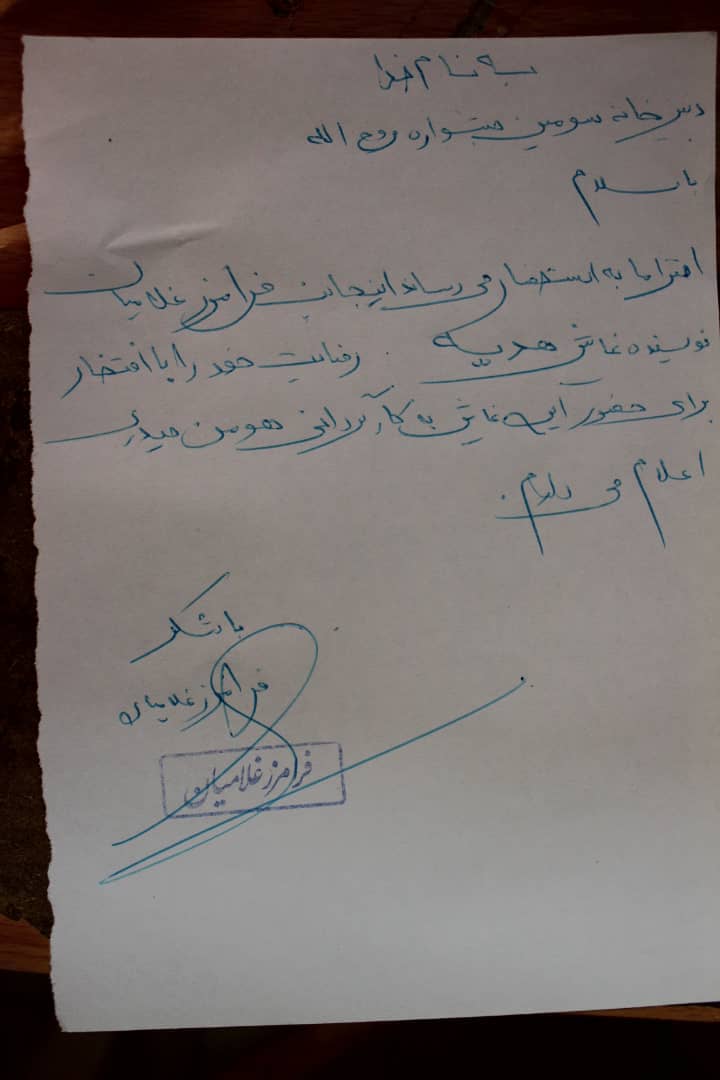 به نام خدا
دبیرخانه سومین جشنواره روح الله
با سلام
احتراما به استحضار می رساند اینجانب فرامرز غلامیان
نویسنده نمایش هدیه . رضایت خود را با افتخار
برای حضور این نمایش به کارگردانی هومن حیدری
اعلام می دارم.
با تشکر
فرامرز غلامیان
فرامرز غلامیان